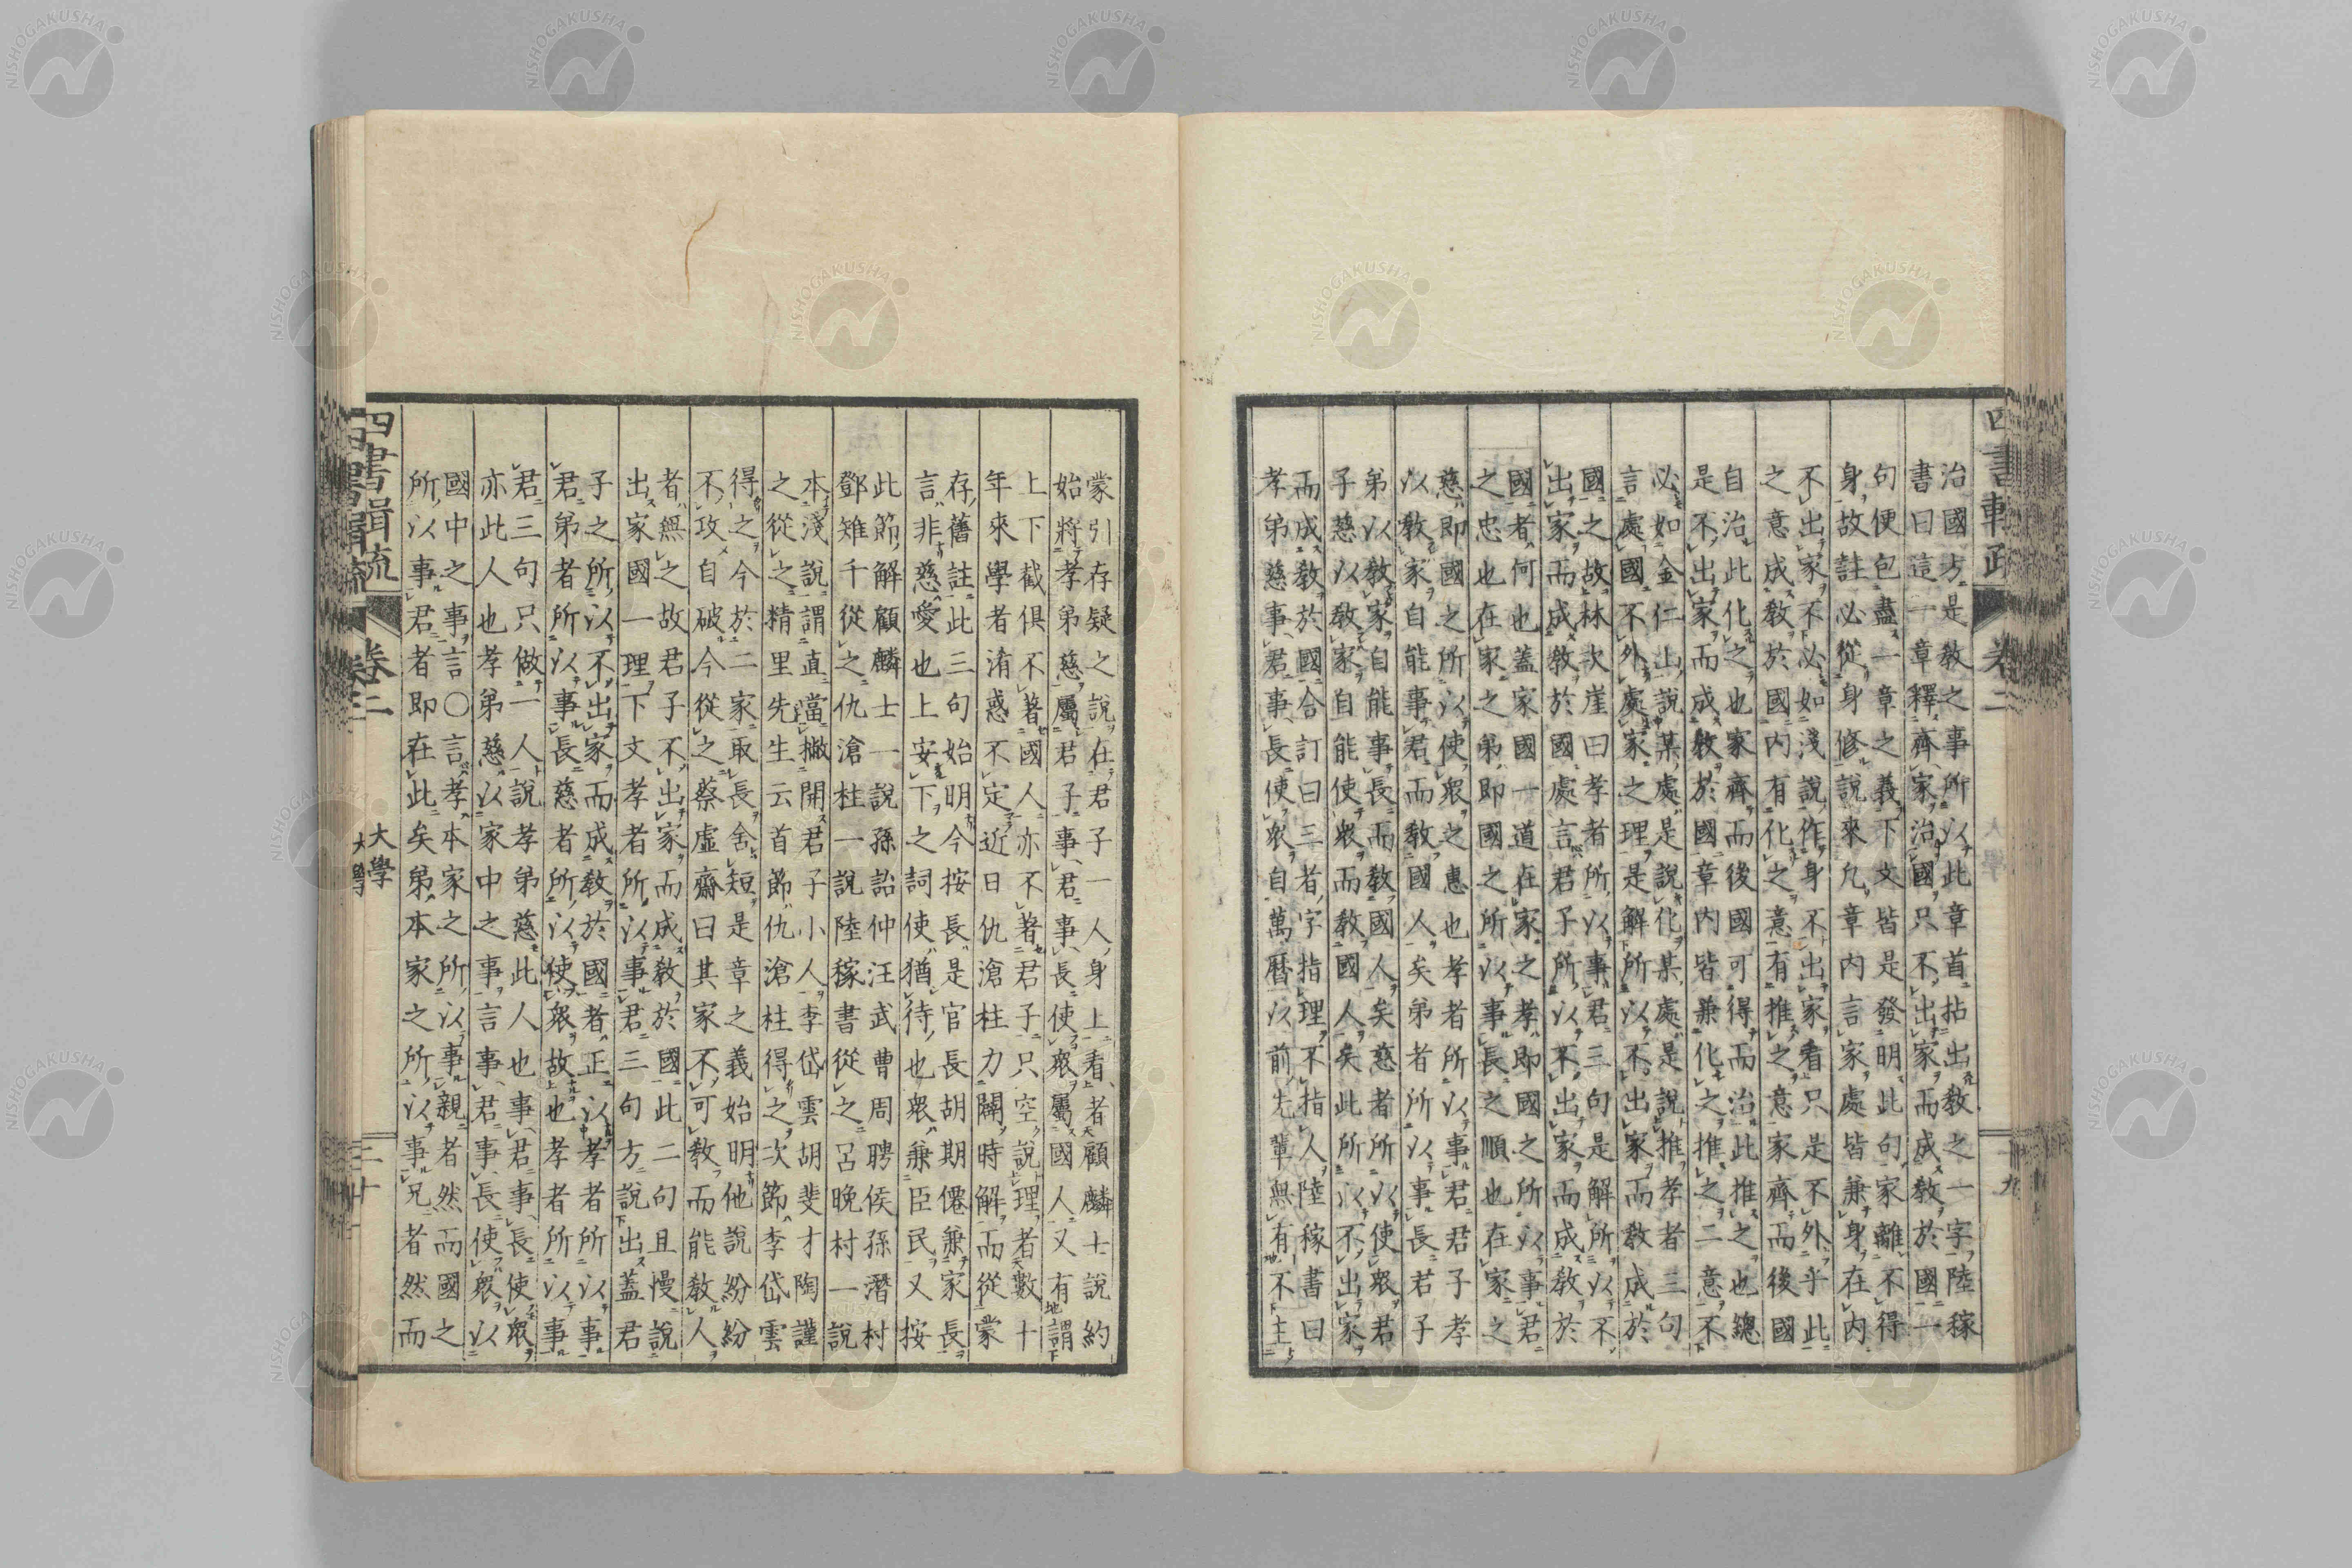 治國方是教之事所以此章首拈出教之一字陸稼
書曰這一章釋齊家治國只不出家而成教於國一
句便包盡一章之義下文皆是發明此句家離不得
身故註必從身修說來凡章內言家處皆兼身在內
不出家不必如淺說作身不出家看只是不外乎此
之意成教於國內有化之意有推之意家齊而後國
自治此化之也家齊而後國可得而治此推之也總
是不出家而成教於國章內皆兼化之推之二意不
必如金仁山說某處是說化某處是說推孝者三句
言處國不外處家之理是解所以不出家而教成於
國之故林次崖曰孝者所以事君三句是解所以不
出家而成教於國處言君子所以不出家而成教於
國者何也蓋家國一道在家之孝即國之所以事君
之忠也在家之弟即國之所以事長之順也在家之
慈即國之所以使眾之惠也孝者所以事君君子孝
以教家自能事君而教國人矣弟者所以事長君子
弟以教家自能事長而教國人矣慈者所以使眾君
子慈以教家自能使眾而教國人矣此所以不出家
而成教於國合訂曰三者字指理不指人陸稼書曰
孝弟慈事君事長使眾自萬曆以前先輩無有不主
蒙引存疑之說在君子一人身上看者顧麟士說約
始將孝弟慈屬君子事君事長使眾屬國人又有謂
上下截俱不著國人亦不著君子只空說理者數十
年來學者淆惑不定近日仇滄柱力闢時解而從蒙
存舊註此三句始明今按長是官長胡期僊兼家長
言非慈愛也上安下之詞使猶待也眾兼臣民又按
此節解顧麟士一說孫詒仲汪武曹周聘侯孫潛村
鄧雉千從之仇滄柱一說陸稼書從之呂晚村一說
本淺說謂直當撇開君子小人李岱雲胡斐才陶謹
之從之精里先生云首節仇滄柱得之次節李岱雲
得之今於二家取長舍短是章之義始明他說紛紛
不攻自破今從之蔡虛齋曰其家不可教而能教人
者無之故君子不出家而成教於國此二句且慢說
出家國一理下文孝者所以事君三句方說出蓋君
子之所以不出家而成教於國者正以孝者所以事
君弟者所以事長慈者所以使眾故也孝者所以事
君三句只做一人說孝弟慈此人也事君事長使眾
亦此人也孝弟慈以家中之事言事君事長使眾以
國中之事言○言孝本家之所以事親者然而國之
所以事君者即在此矣弟本家之所以事兄者然而
四書輯疏
卷二
大學
二十